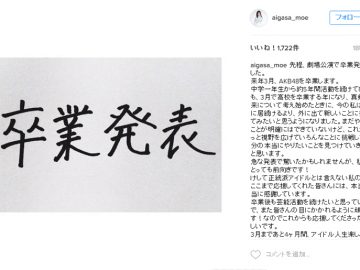 aigasa_moe
フォロー
卒業発表
いいね！1,722件
aigasa_moe 先程、劇場公演で卒業発
した。
来年3月、AKB48を卒業します。
中学一年生から約5年間活動を続けて
も、3月で高校を卒業する年になり、真
来について考え始めたときに、今の私
に居続けるより、外に出て新しいことに
てみたいと思うようになりました。まだや
ことが明確にはできていないけど、これ
っと視野を広げていろんなことに挑戦し
分の本当にやりたいことを見つけていき
と思います。
急な発表で驚いたかもしれませんが、私
とっても前向きです！
けして正統派アイドルとは言えない私の
ここまで応援してくれた皆さんには、本
当に感謝しています。
卒業後も芸能活動を続けたいと思ってい
で、また皆さんの目にかかれるように頑
す！なのでこれからも応援してくださった
しいです。
3月まであと4ヶ月間、アイドル人生楽し
コメントを追加…